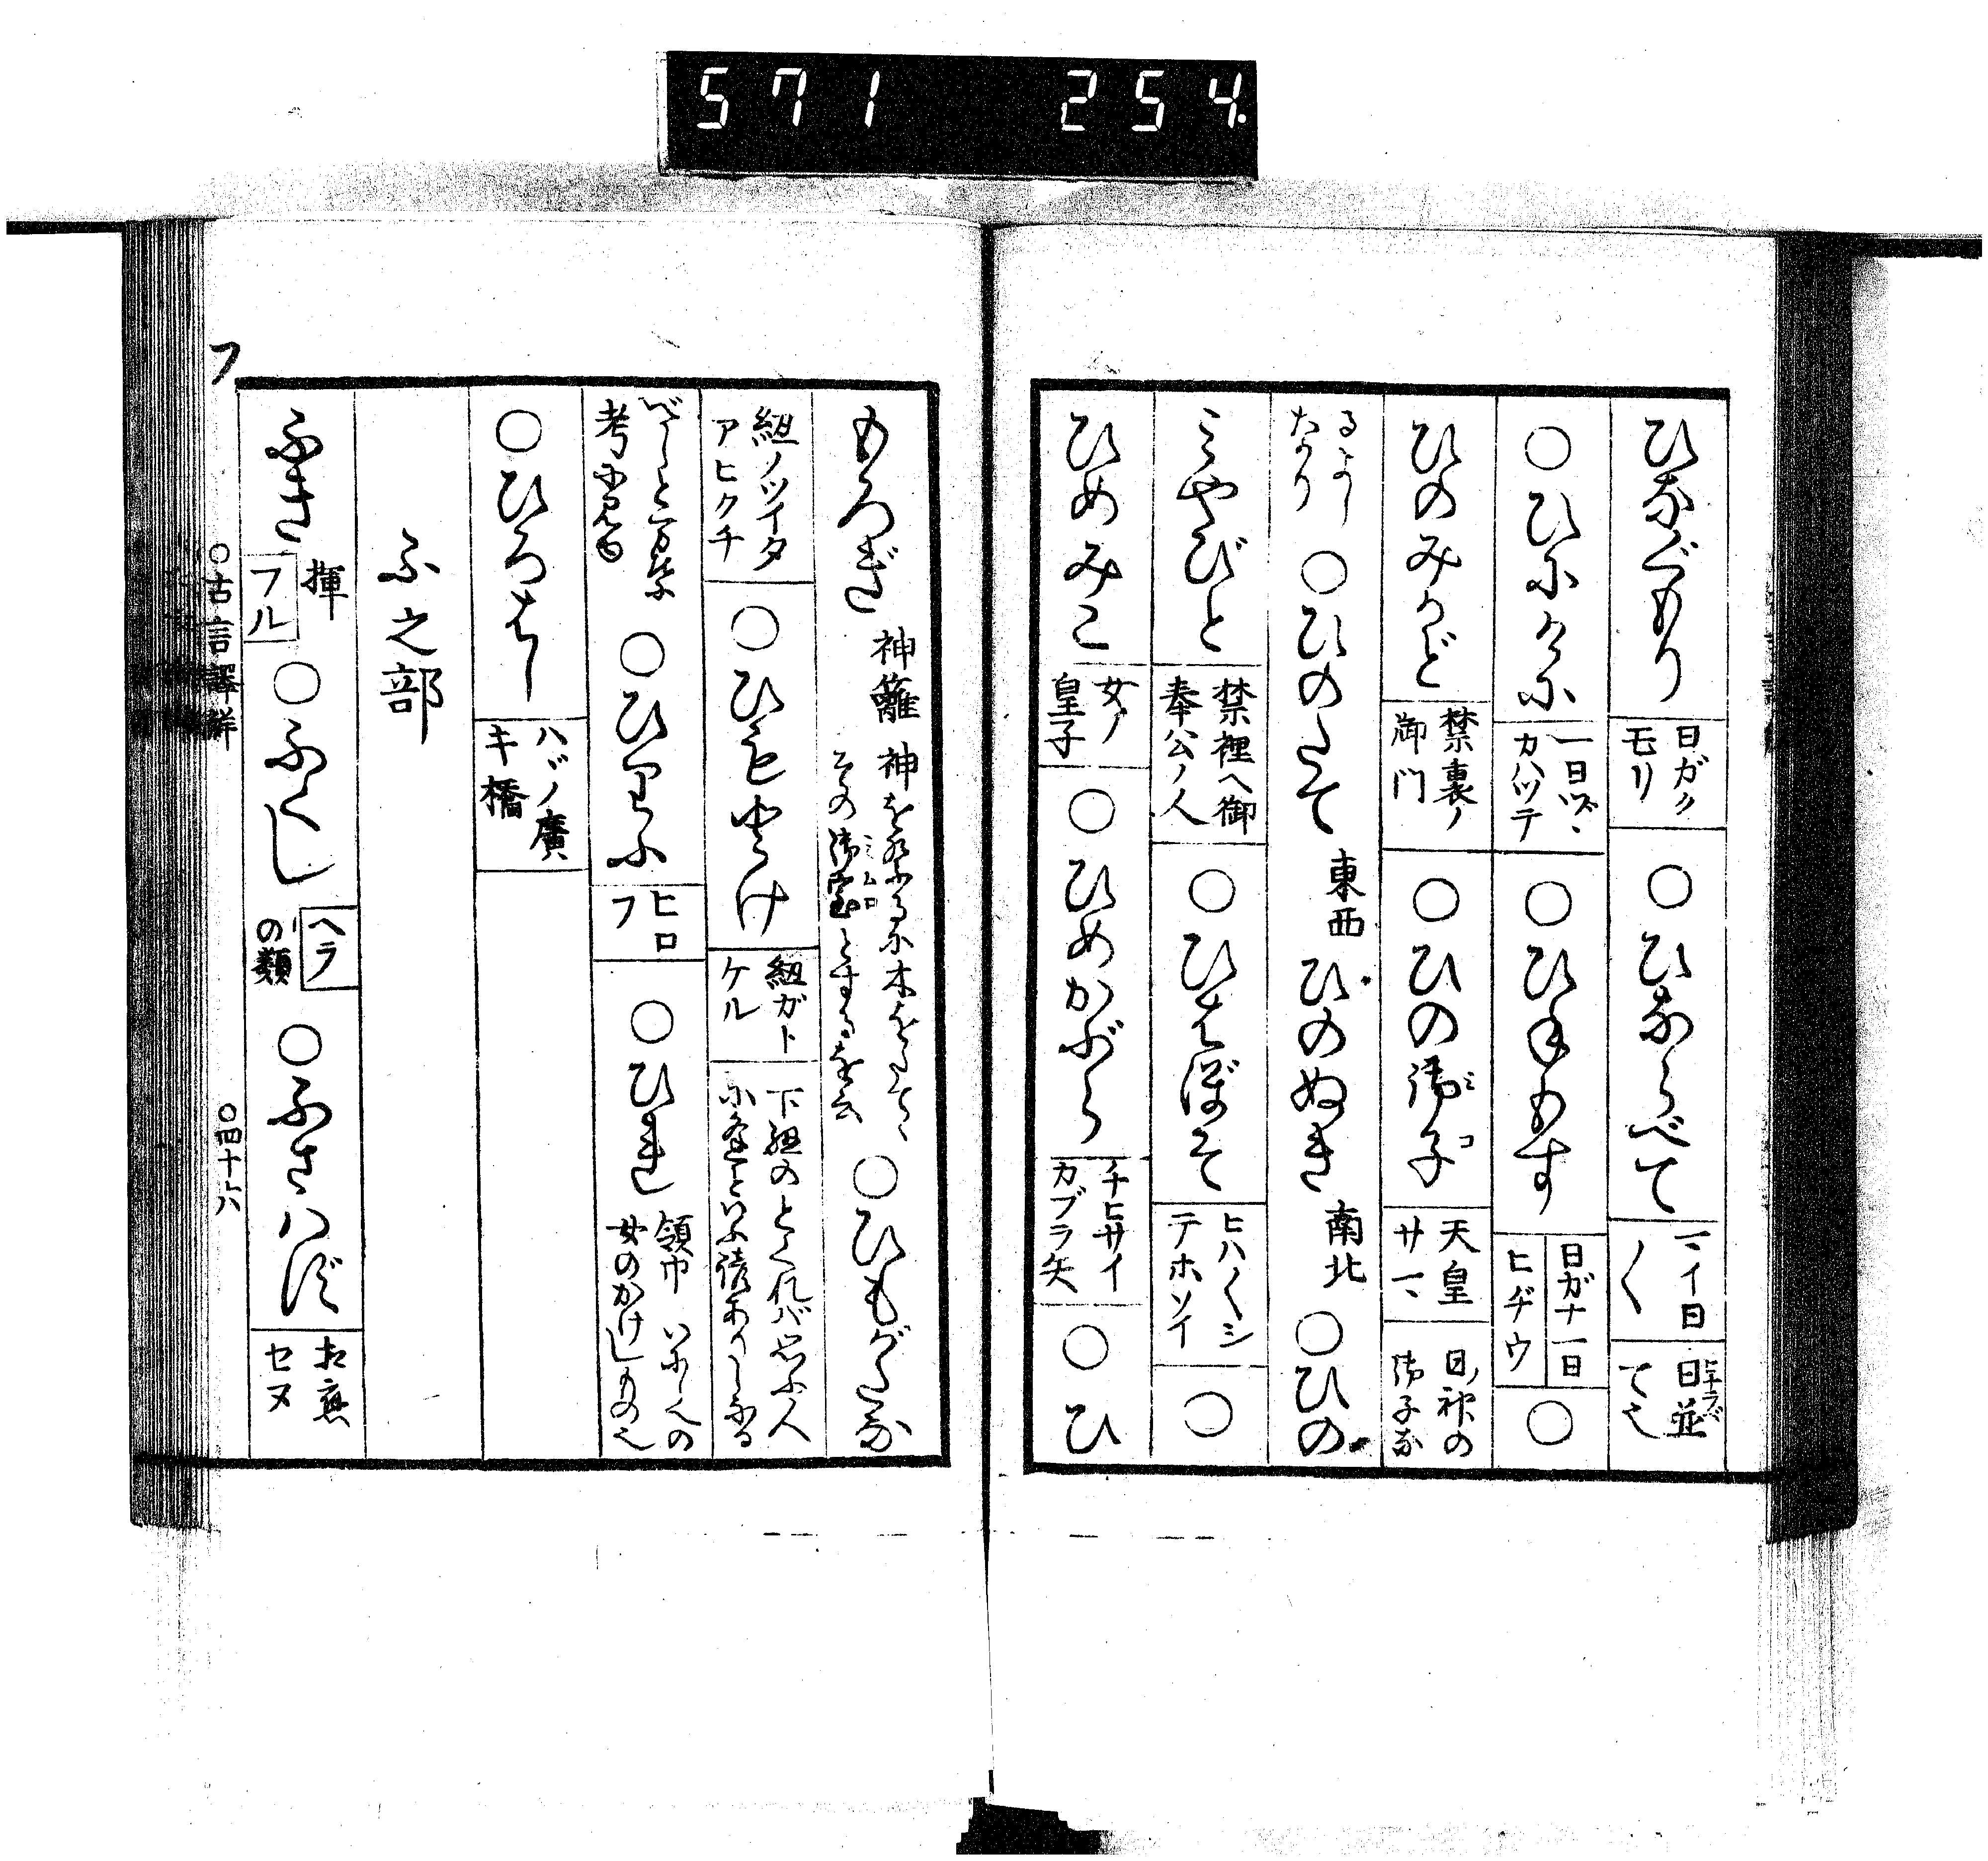 571 254.
ひなぐもり 日ガクモリ ○ひならべて 一イ日〱 日並ヒナラベて也
○ひにけに 一日ヅヽカハツテ ○ひねもす 日ガナ一日ヒヂウ ○
ひのみかど 禁裏ノ御門 ○ひの御子ミコ 天皇サマ 日ノ神の御子な
るよしなり ○ひのたて 東西 ひのぬき 南北 ○ひの
みやびと 禁裡ヘ御奉公ノ人 ○ひはぼそ ヒハ〱シテホソイ ○
ひめみこ 女ノ皇子 ○ひめかぶら チヒサイカブラ矢 ○ひ
もろぎ 神籬 神を祭るに木をたてゝその御室ミムロとするを云 ○ひもがたな
紐ノツイタアヒクチ ○ひもとけ 紐ガトケル 下紐のとくれバ思ふ人に逢といふ諺ありしなる
べしと万葉考に見ゆ ○ひりふ ヒロフ ○ひれ 領巾 いにしへの女のかけしもの也
○ひろはし ハヾノ廣キ橋
ふ之部
ふき 揮 フル ○ふくし ヘラの類 ○ふさはず 相應セヌ
フ
○古言譯解 ○四十六